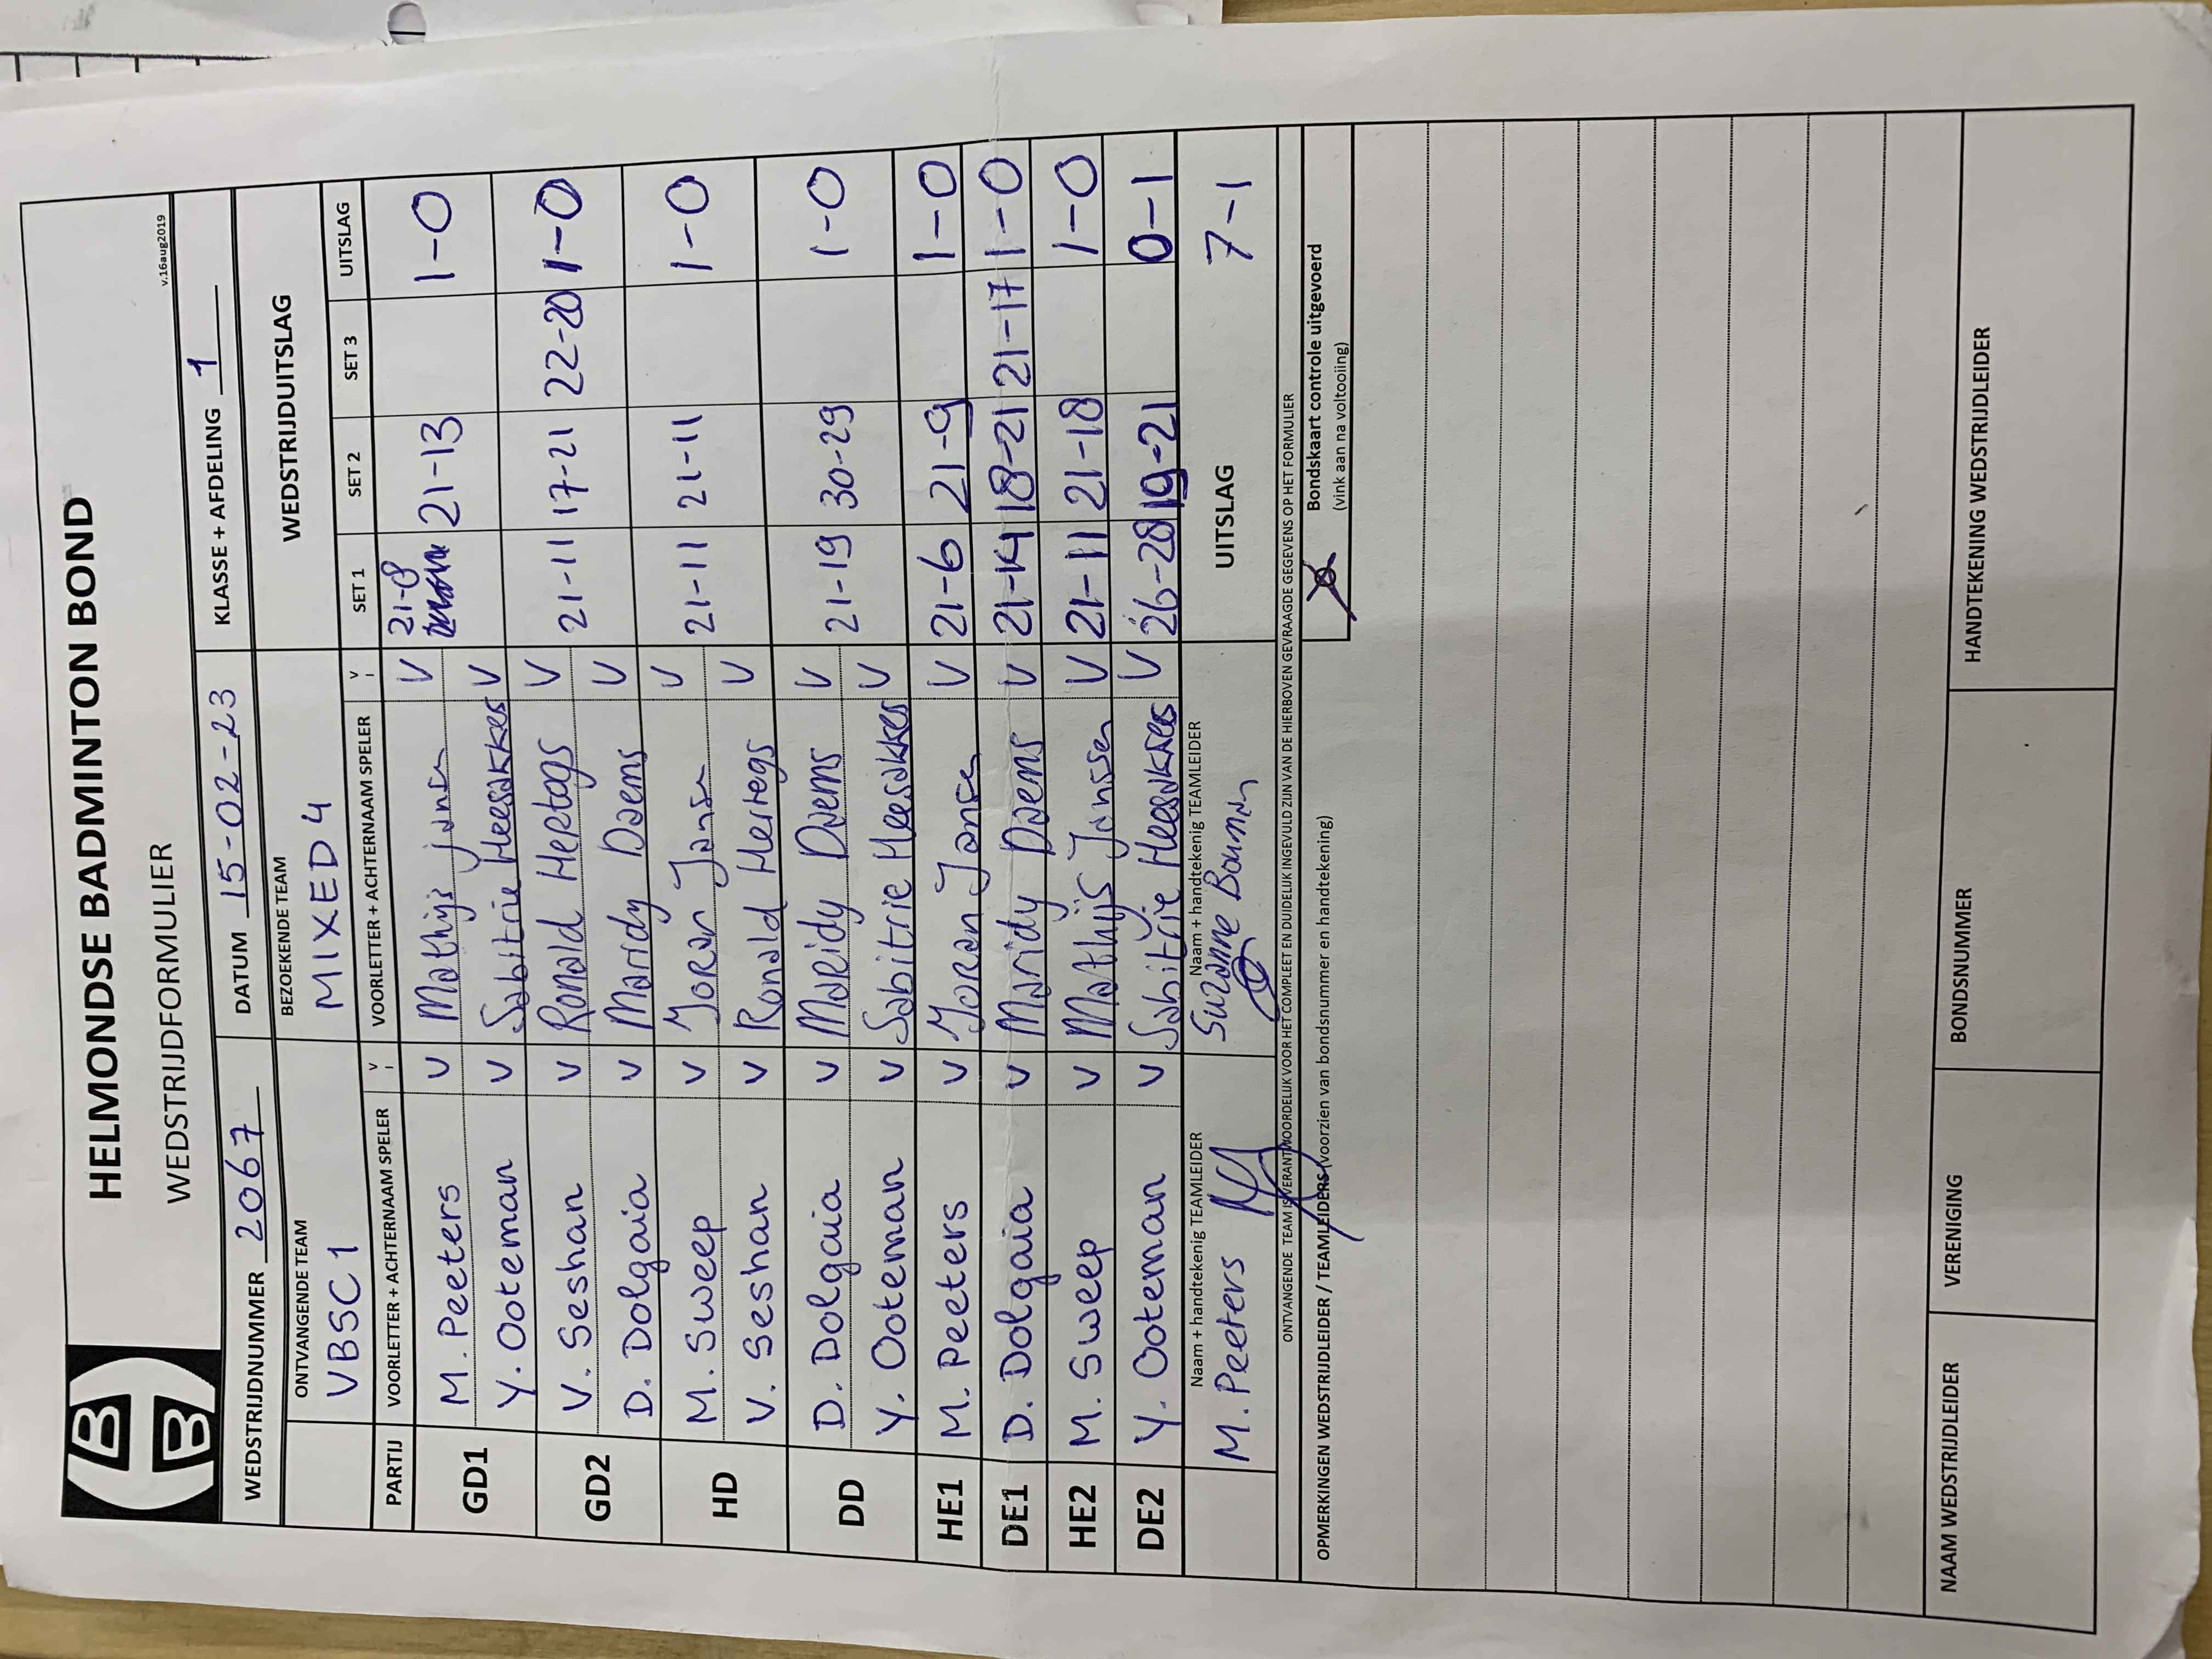 HELMONDSE BADMINTON BOND
WEDSTRIJDFORMULIER
v.16aug2019
WEDSTRIJDNUMMER 2067 DATUM 15-02-23 KLASSE + AFDELING 1
ONTVANGENDE TEAM BEZOEKENDE TEAM WEDSTRIJDUITSLAG
VBSC 1 MIXED 4
PARTIJ VOORLETTER + ACHTERNAAM SPELER V VOORLETTER + ACHTERNAAM SPELER V SET 1 SET 2 SET 3 UITSLAG
GD1 M. Peeters V Mathijs Jansen V 21-8 21-13 1-0
Y. Ooteman V Sabitrie Heesakkers V
GD2 V. Seshan V Ronald Hertogs V 21-11 17-21 22-20 1-0
D. Dolgaia V Maridy Daems V
HD M. Sweep V Joran Jansen V 21-11 21-11 1-0
V. Seshan V Ronald Hertogs V
DD D. Dolgaia V Maridy Daems V 21-19 30-29 1-0
Y. Ooteman V Sabitrie Heesakkers V
HE1 M. Peeters V Joran Jansen V 21-6 21-9 1-0
DE1 D. Dolgaia V Maridy Daems V 21-14 18-21 21-17 1-0
HE2 M. Sweep V Mathijs Janssen V 21-11 21-18 1-0
DE2 Y. Ooteman V Sabitrie Heesakkers V 26-28 19-21 0-1
Naam + handtekenig TEAMLEIDER Naam + handtekenig TEAMLEIDER UITSLAG 7-1
M. Peeters Suzanne Bouman
ONTVANGENDE TEAM IS VERANTWOORDELIJK VOOR HET COMPLEET EN DUIDELIJK INGEVULD ZIJN VAN DE HIERBOVEN GEVRAAGDE GEGEVENS OP HET FORMULIER
OPMERKINGEN WEDSTRIJDLEIDER / TEAMLEIDERS (voorzien van bondsnummer en handtekening)
Bondskaart controle uitgevoerd
(vink aan na voltooiing)
NAAM WEDSTRIJDLEIDER VERENIGING BONDSNUMMER HANDTEKENING WEDSTRIJDLEIDER